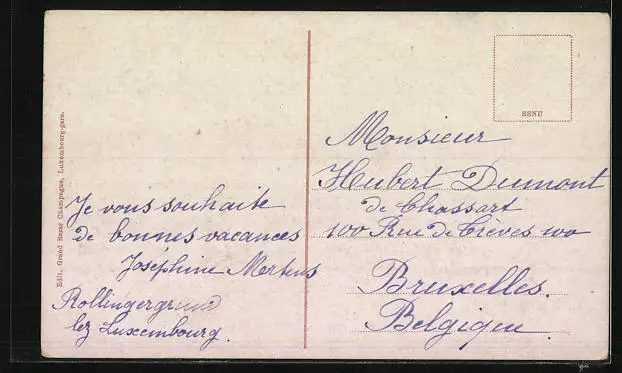 Edit. Grand Bazar Champagne, Luxembourg-gare.
Je vous souhaite
de bonnes vacances
Josephine Mertens
Rollingergrund
lez Luxembourg.
SSNU
Monsieur
Hubert Dumont
de Chassart
100 Rue de Trèves 100
Bruxelles.
Belgique